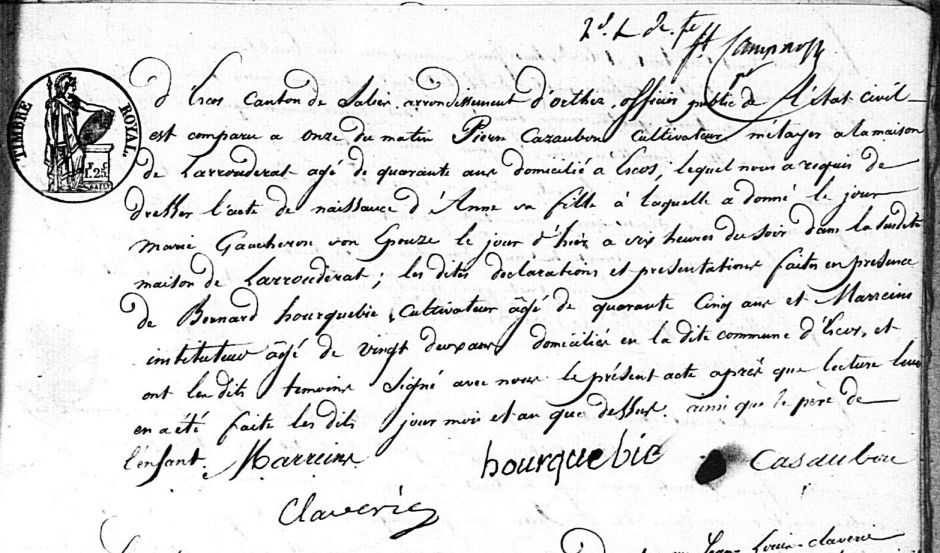 2d. L
d'Escos Canton de Salies arrondissement d'orthez, officier public de L'état civil
TIMBRE ROYAL
1.25
est comparu a onze du matin Pierre Cazaubon cultivateur métayer a la maison
de Larrouderat agé de quarante ans domicilié à Escos, lequel nous a requis de
dresser l'acte de naissance d'Anne sa fille à laquelle a donné le jour
marie Gaucheron son Epouze le jour d'hier a six heures du soir dans la susdite
maison de Larrouderat; les dites declarations et presentations faites en presence
de Bernard hourquebie, cultivateur âgé de quarante cinq ans et Marreins
instituteur âgé de vingt deux ans domiciliés en la dite commune d'Escos, et
ont les dits temoins signé avec nous le présent acte après que lecture leur
en a été faite les dits jour mois et an que dessus. ainsi que le père de
l'enfant. Marreins hourquebie Casaubon
Claverie
Jean Louis claverie